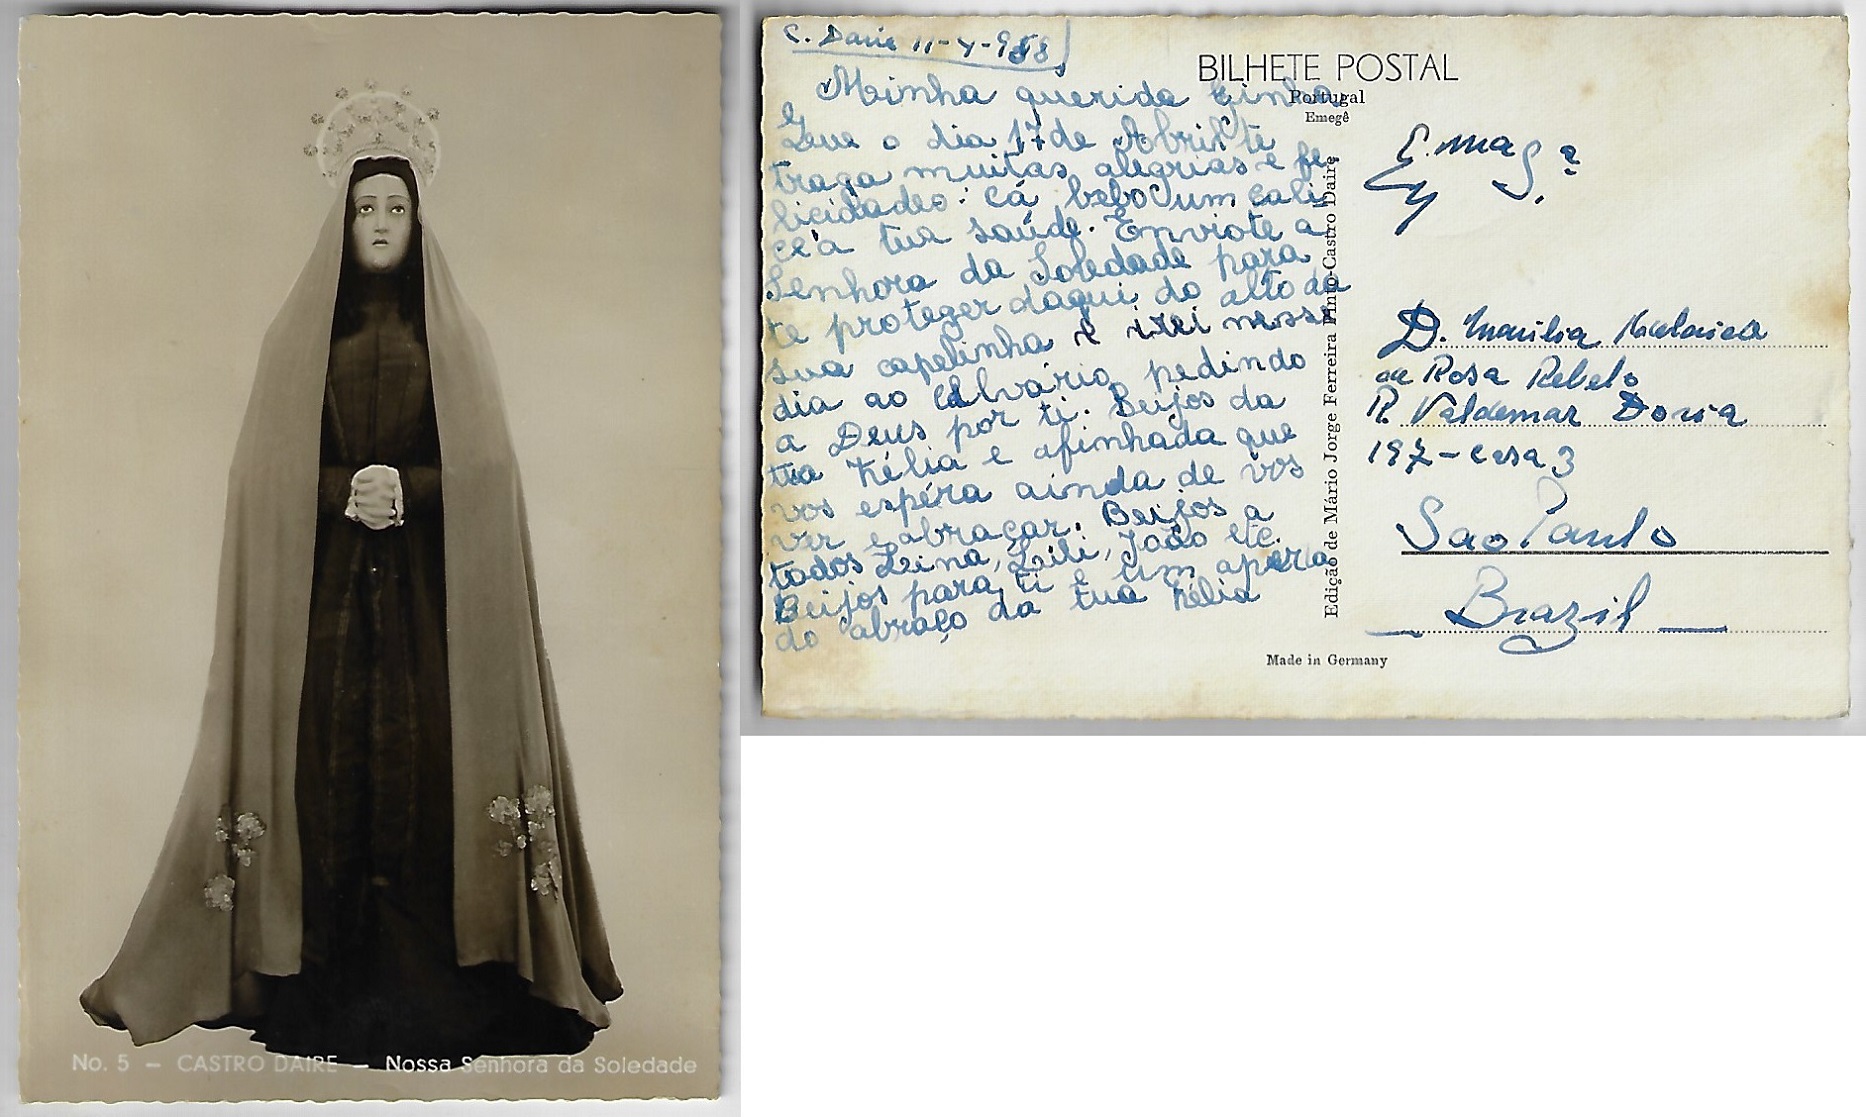 No. 5 – CASTRO DAIRE – Nossa Senhora da Soledade
C. Daire 11-4-958
Minha querida
Que o dia 17 de Abril te
traga muitas alegrias e fe
licidades. Cá bebo um cali
ce á tua saúde. Enviote a
Senhora da Soledade para
te proteger daqui do alto da
sua capelinha e irei nesse
dia ao Calvário, pedindo
a Deus por ti. Beijos da
tua Hélia e afinhada que
vos espéra ainda de vos
ver e abraçar. Beijos a
todos Leina, Lili, João etc.
Beijos para ti e um aperta
do abraço da tua Hélia
BILHETE POSTAL
Portugal
Emegê
Edição de Mário Jorge Ferreira Pinto-Castro Daire
E.ma S.ª
D. Marilia
da Rosa Rebelo
R. Valdemar Doria
197-casa 3
Sao Paulo
Brazil
Made in Germany